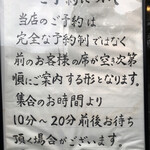 ご予約について
当店のご予約は
完全な予約制ではなく
前のお客様の席が空き次第
順にご案内する形となります。
集合のお時間より
10分〜20分前後お待ち
頂く場合がございます。